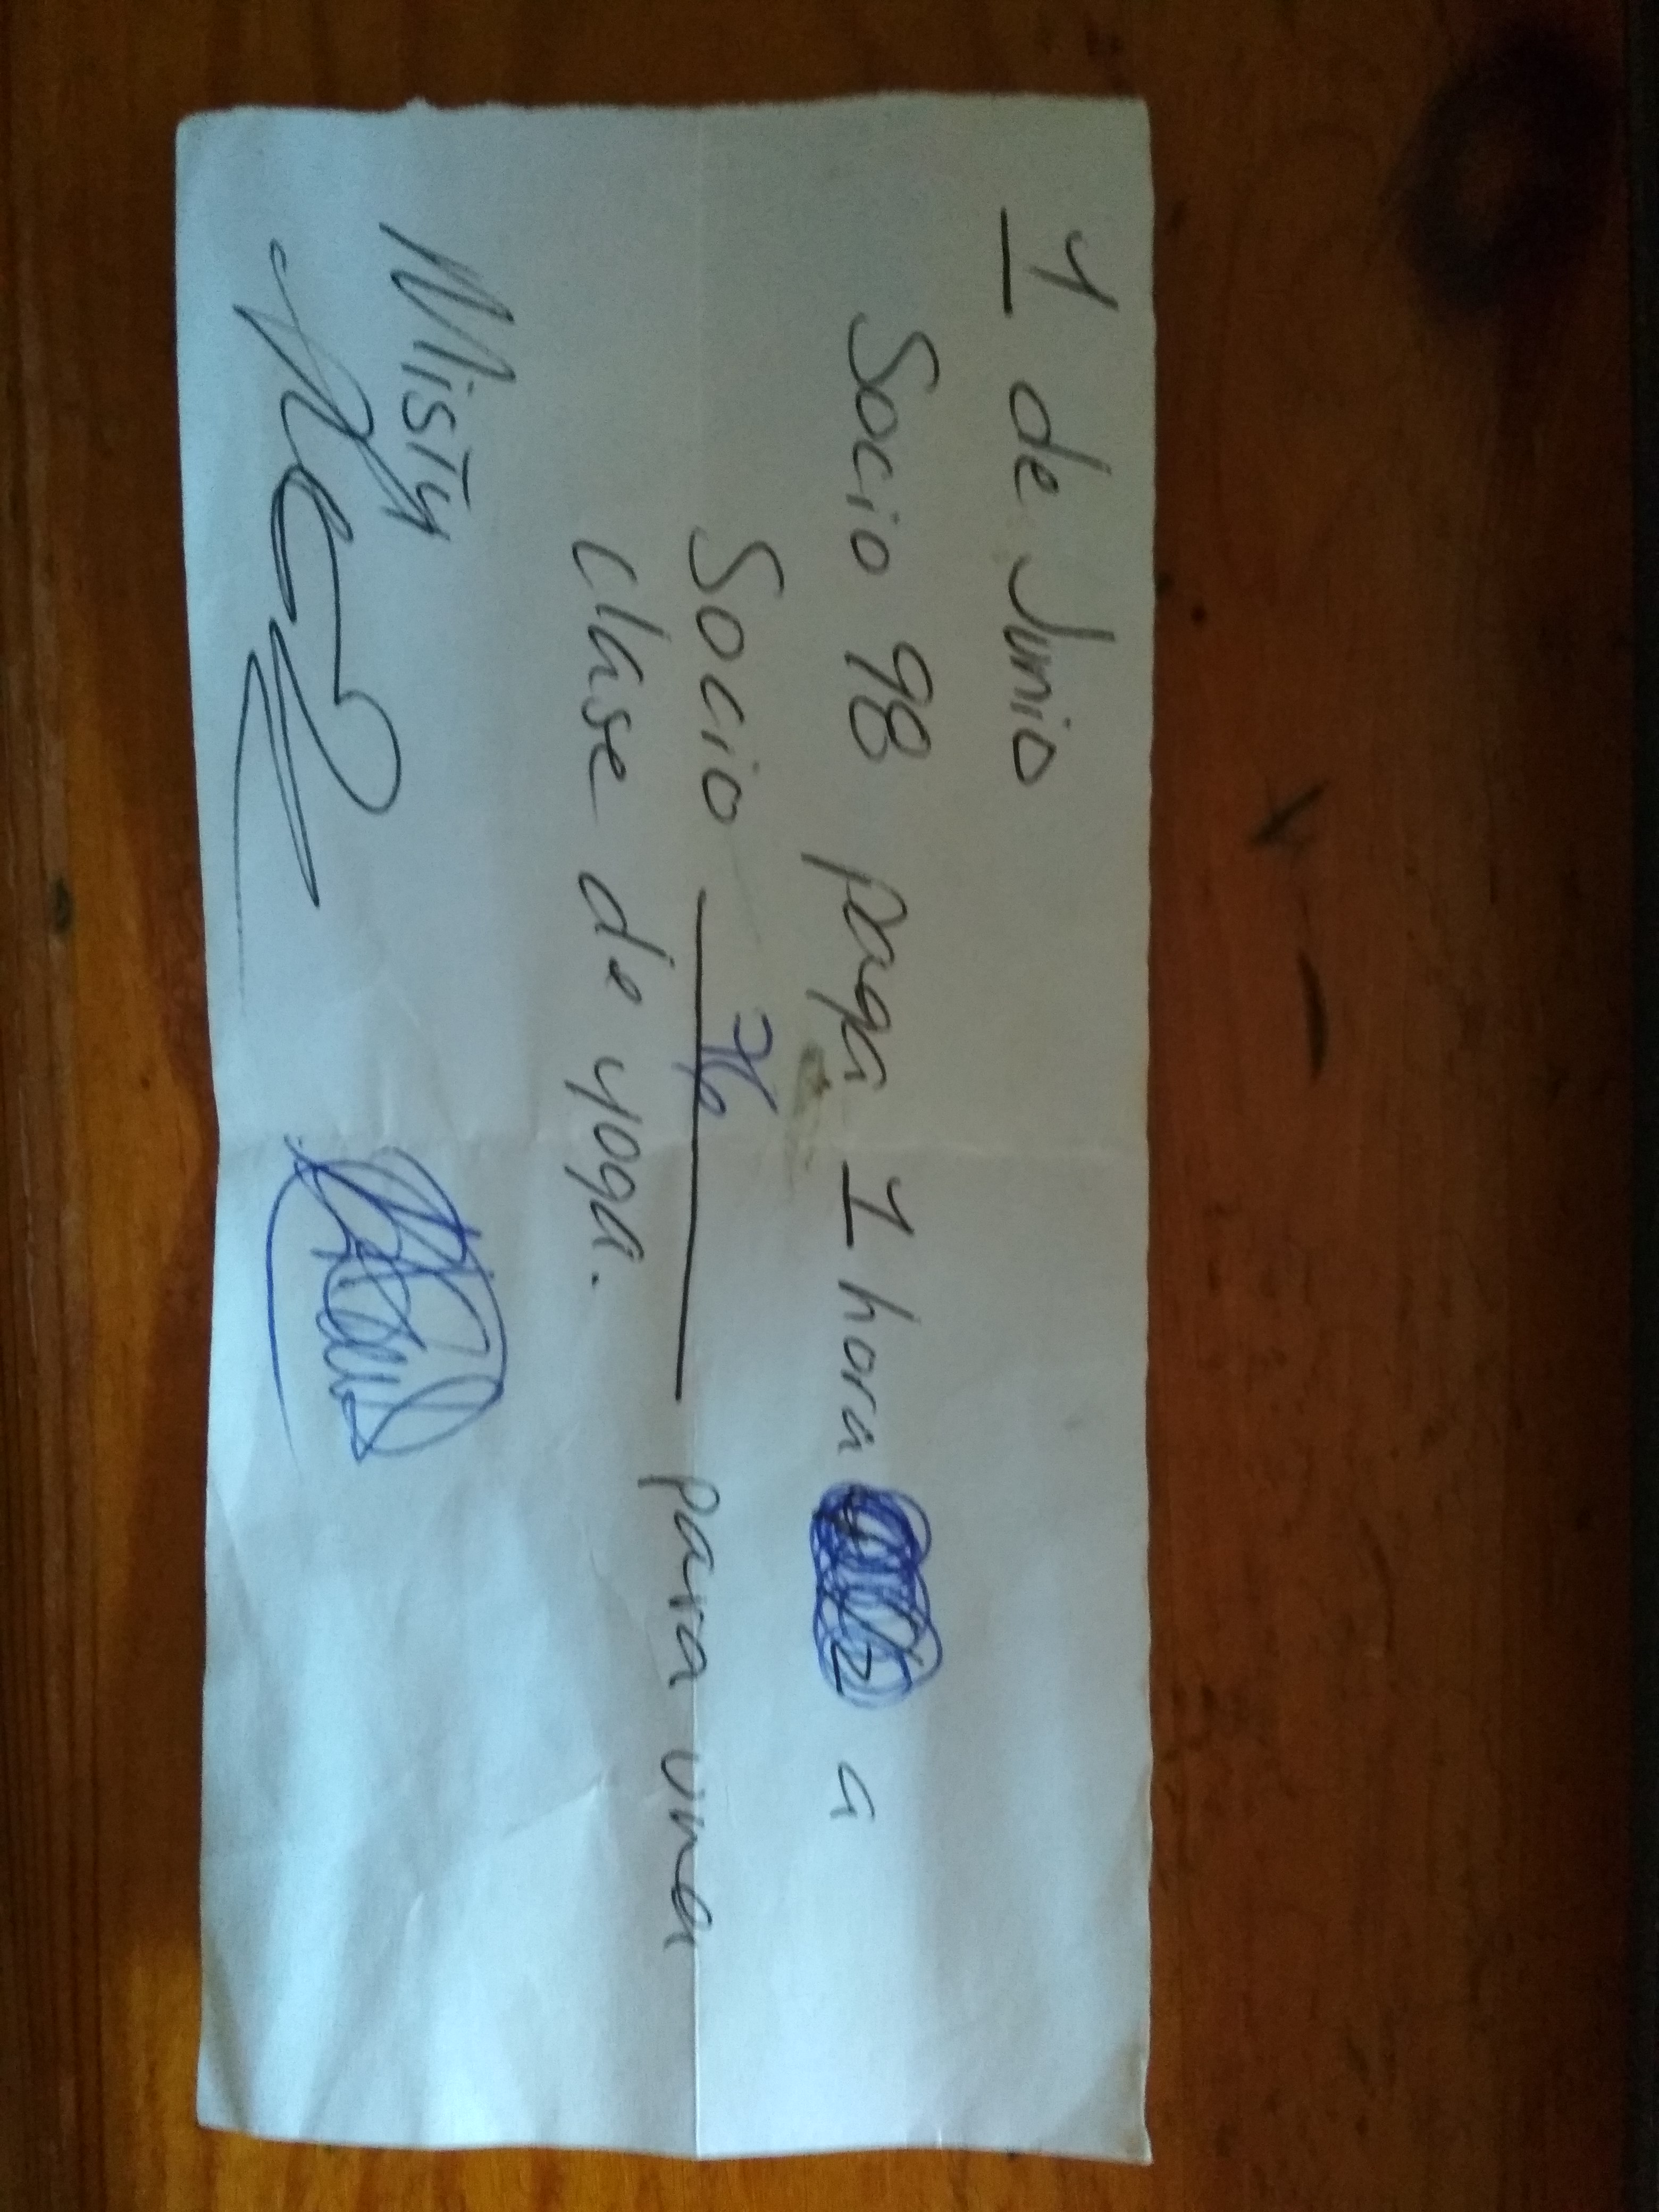 1 de Junio
Socio 98 paga 1 hora a
Socio 76 para una
clase de yoga.
Misty